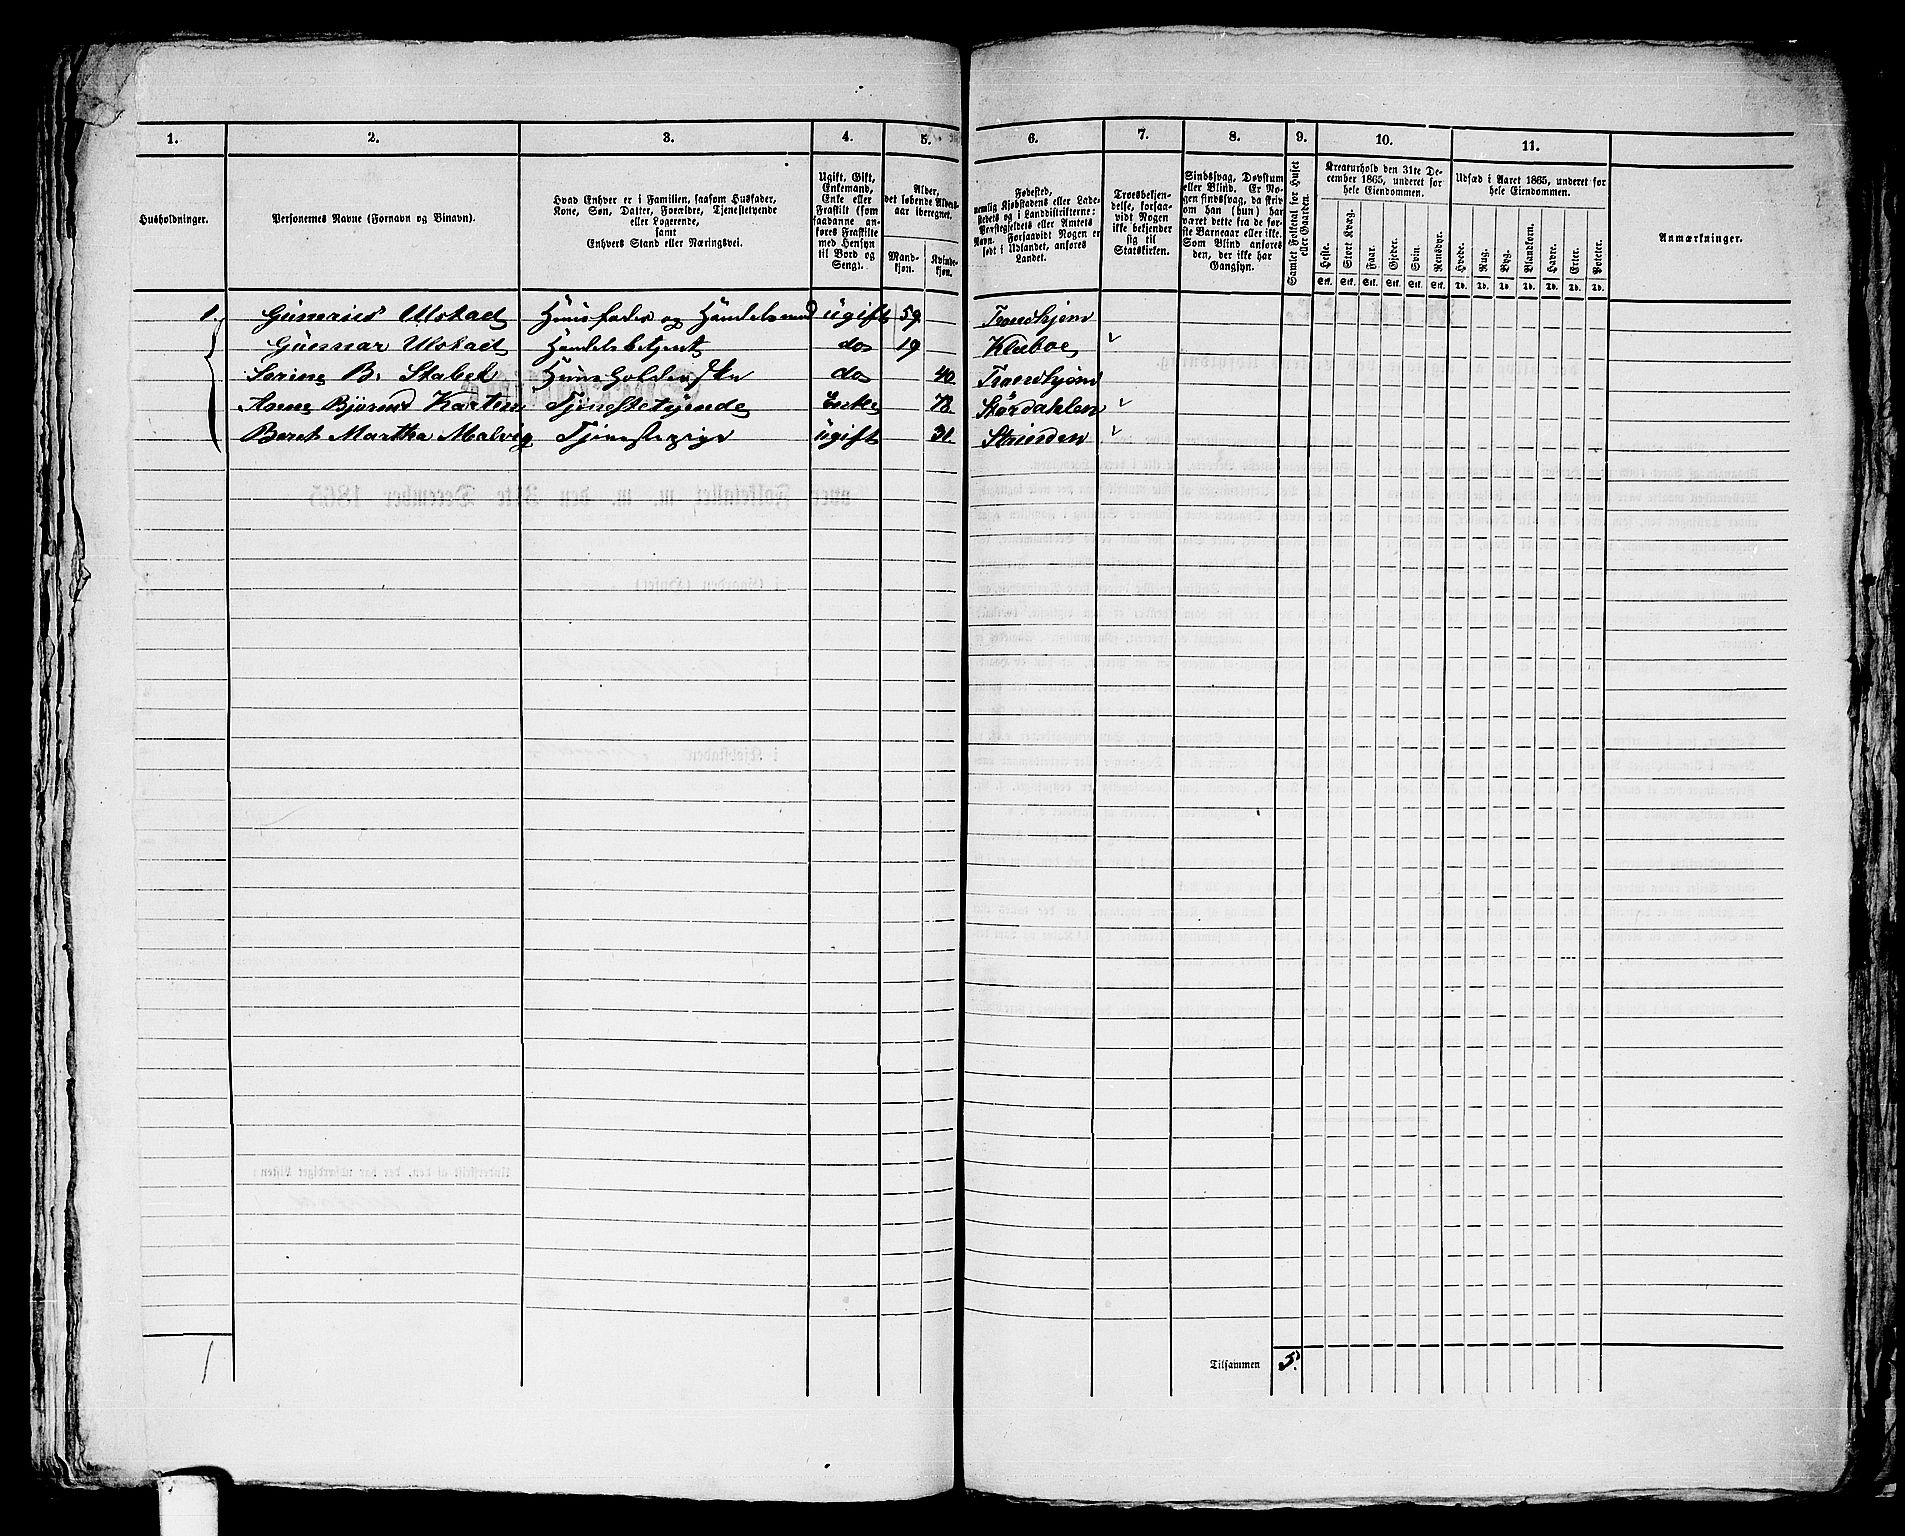 1. 2. 3. 4. 5. 6. 7. 8. 9. 10. 11.
Husholdninger.
Personernes Navne (Fornavn og Binavn).
Hvad Enhver er i Familien, saasom Husfader,
Kone, Søn, Datter, Forældre, Tjenestetyende
eller Logerende,
samt
Enhvers Stand eller Næringsvei.
Ugift, Gift,
Enkemand,
Enke eller
Fraskilt (som
saadanne an-
føres Fraskilte
med Hensyn
til Bord og
Seng).
Alder,
det løbende Alders-
aar iberegnet.
Mand-
kjøn.
Kvinde-
kjøn.
Fødested,
nemlig Kjøbstadens eller Lade-
stedets og i Landdistrikterne:
Præstegjeldets eller Amtets
Navn. Forsaavidt Nogen er
født i Udlandet, anføres
Landet.
Troesbekjen-
delse, forsaa-
vidt Nogen
ikke bekjender
sig til
Statskirken.
Sindssvag, Døvstum
eller Blind. Er No-
gen sindssvag, da skriv
om han (hun) har
været dette fra de før-
ste Barneaar eller ikke.
Som Blind anføres
den, der ikke har
Gangsyn.
Samlet Folketal for Huset
eller Gaarden.
Kreaturhold den 31te De-
cember 1865, underet for
hele Eiendommen.
Heste. Stort Kvæg. Faar. Gjeder. Svin. Rensdyr.
Stk. Stk. Stk. Stk. Stk. Stk.
Udsæd i Aaret 1865, underet for
hele Eiendommen.
Hvede. Rug. Byg. Blandkorn. Havre. Erter. Poteter.
Td. Td. Td. Td. Td. Td. Td.
Anmærkninger.
1. Gunerius Ulstad Huusfader og Handelsmand ugift 59 Trondhjem
Gunnar Ulstad Handelsbetjent do 19 Klæboe
Serine B. Stabek Huusholderske do 40 Trondhjem
Anne Tjenestetyende Enke 78 Stördahlen
Beret Martha Malvig Tjenestepige ugift 31 Strinden
1
Tilsammen 5.